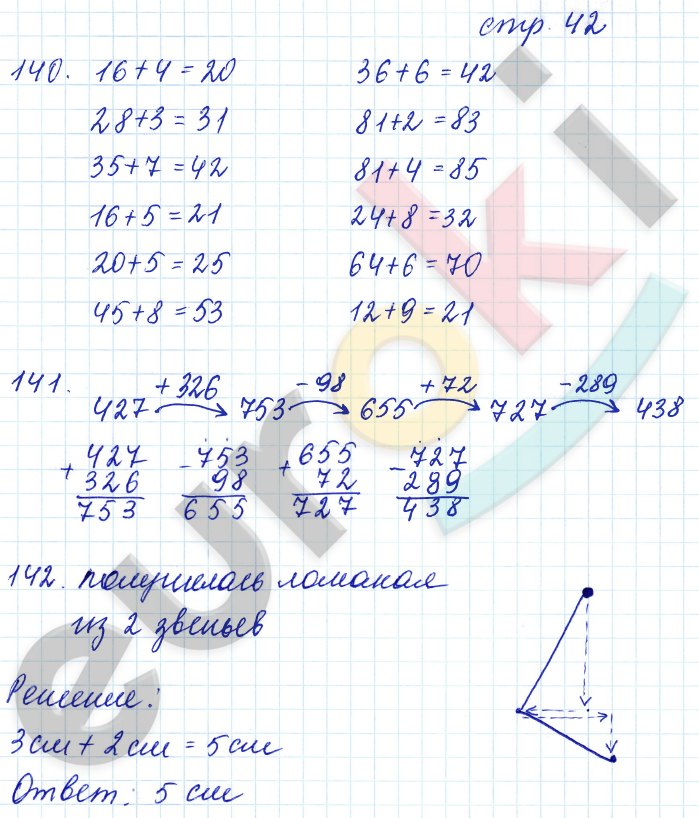 стр. 42
140. 16+4=20 36+6=42
28+3=31 81+2=83
35+7=42 81+4=85
16+5=21 24+8=32
20+5=25 64+6=70
45+8=53 12+9=21
141. 427 +326 753 -98 655 +72 727 -289 438
+ 427 - 753 + 655 - 727
326 98 72 289
753 655 727 438
142. получилась ломаная
из 2 звеньев
Решение:
3 см + 2 см = 5 см
Ответ: 5 см
euroki